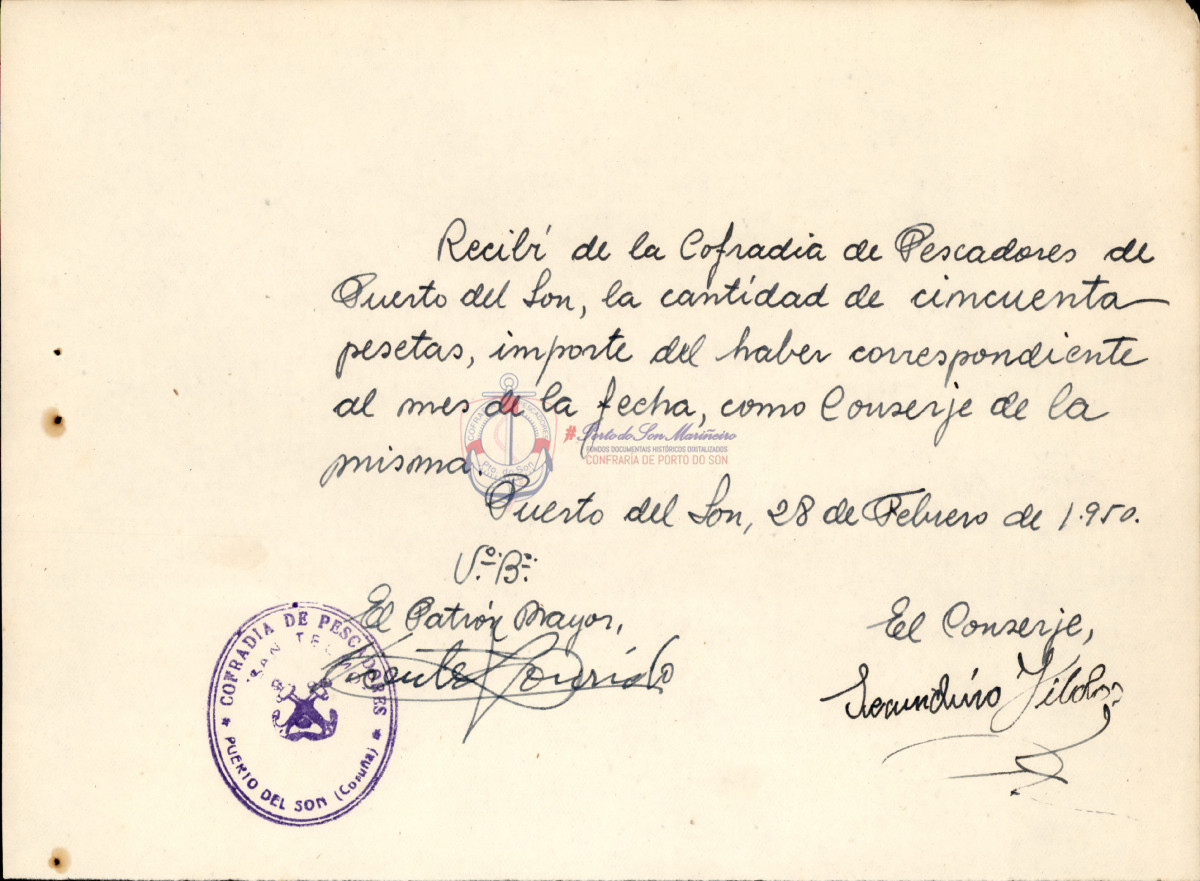 Recibí de la Cofradia de Pescadores de
Puerto del Son, la cantidad de cimcuenta
pesetas, importe del haber correspondiente
al mes de la fecha, como Conserje de la
misma.
Puerto del Son, 28 de Febrero de 1.950.
Vº.Bº.
El Patrón Mayor,
El Conserje,
Vicente
Secundino
COFRADIA DE PESCADORES
SAN TELMO
PUERTO DEL SON (Coruña)
COFRADÍA PESCADORES
Pto. do Son
#Porto do Son Mariñeiro
FONDOS DOCUMENTAIS HISTÓRICOS DIXITALIZADOS
CONFRARÍA DE PORTO DO SON